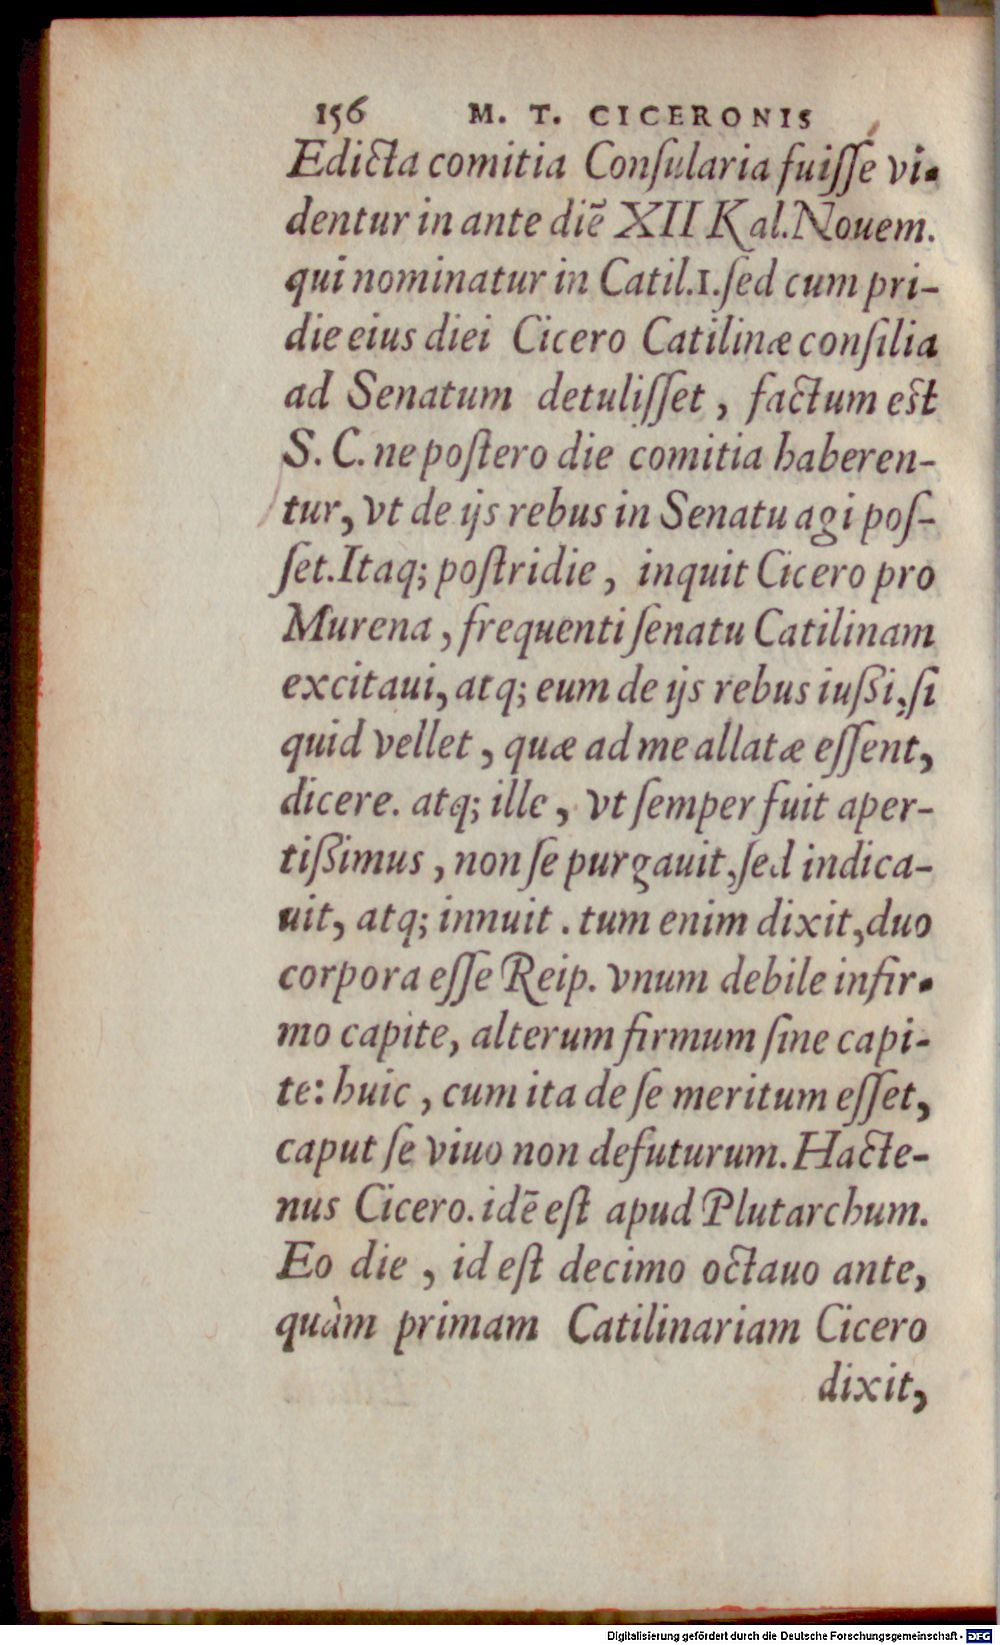 156 M. T. CICERONIS
Edicta comitia Conſularia fuiſſe vi-
dentur in ante diē XII Kal. Nouem.
qui nominatur in Catil.1. ſed cum pri-
die eius diei Cicero Catilinæ conſilia
ad Senatum detuliſſet, factum eſt
S. C. ne poſtero die comitia haberen-
tur, vt de ijs rebus in Senatu agi poſ-
ſet. Itaq; poſtridie, inquit Cicero pro
Murena, frequenti ſenatu Catilinam
excitaui, atq; eum de ijs rebus iußi, ſi
quid vellet, quæ ad me allatæ eſſent,
dicere. atq; ille, vt ſemper fuit aper-
tißimus, non ſe purgauit, ſed indica-
uit, atq; innuit. tum enim dixit, duo
corpora eſſe Reip. vnum debile infir-
mo capite, alterum firmum ſine capi-
te: huic, cum ita de ſe meritum eſſet,
caput ſe viuo non defuturum. Hacte-
nus Cicero. idē eſt apud Plutarchum.
Eo die, id eſt decimo octauo ante,
quàm primam Catilinariam Cicero
dixit,
Digitalisierung gefördert durch die Deutsche Forschungsgemeinschaft - DFG